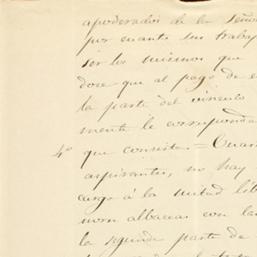 apoderados de la Seño
por cuanto sus trabaj
ser los mismos que
doce que al pago de e
la parte del vinculo
mente le corresponda
4º que consiste = Cuan
aspirantes, no hay
cargo á la mitad lib
albaceas con la
la segunda parte de